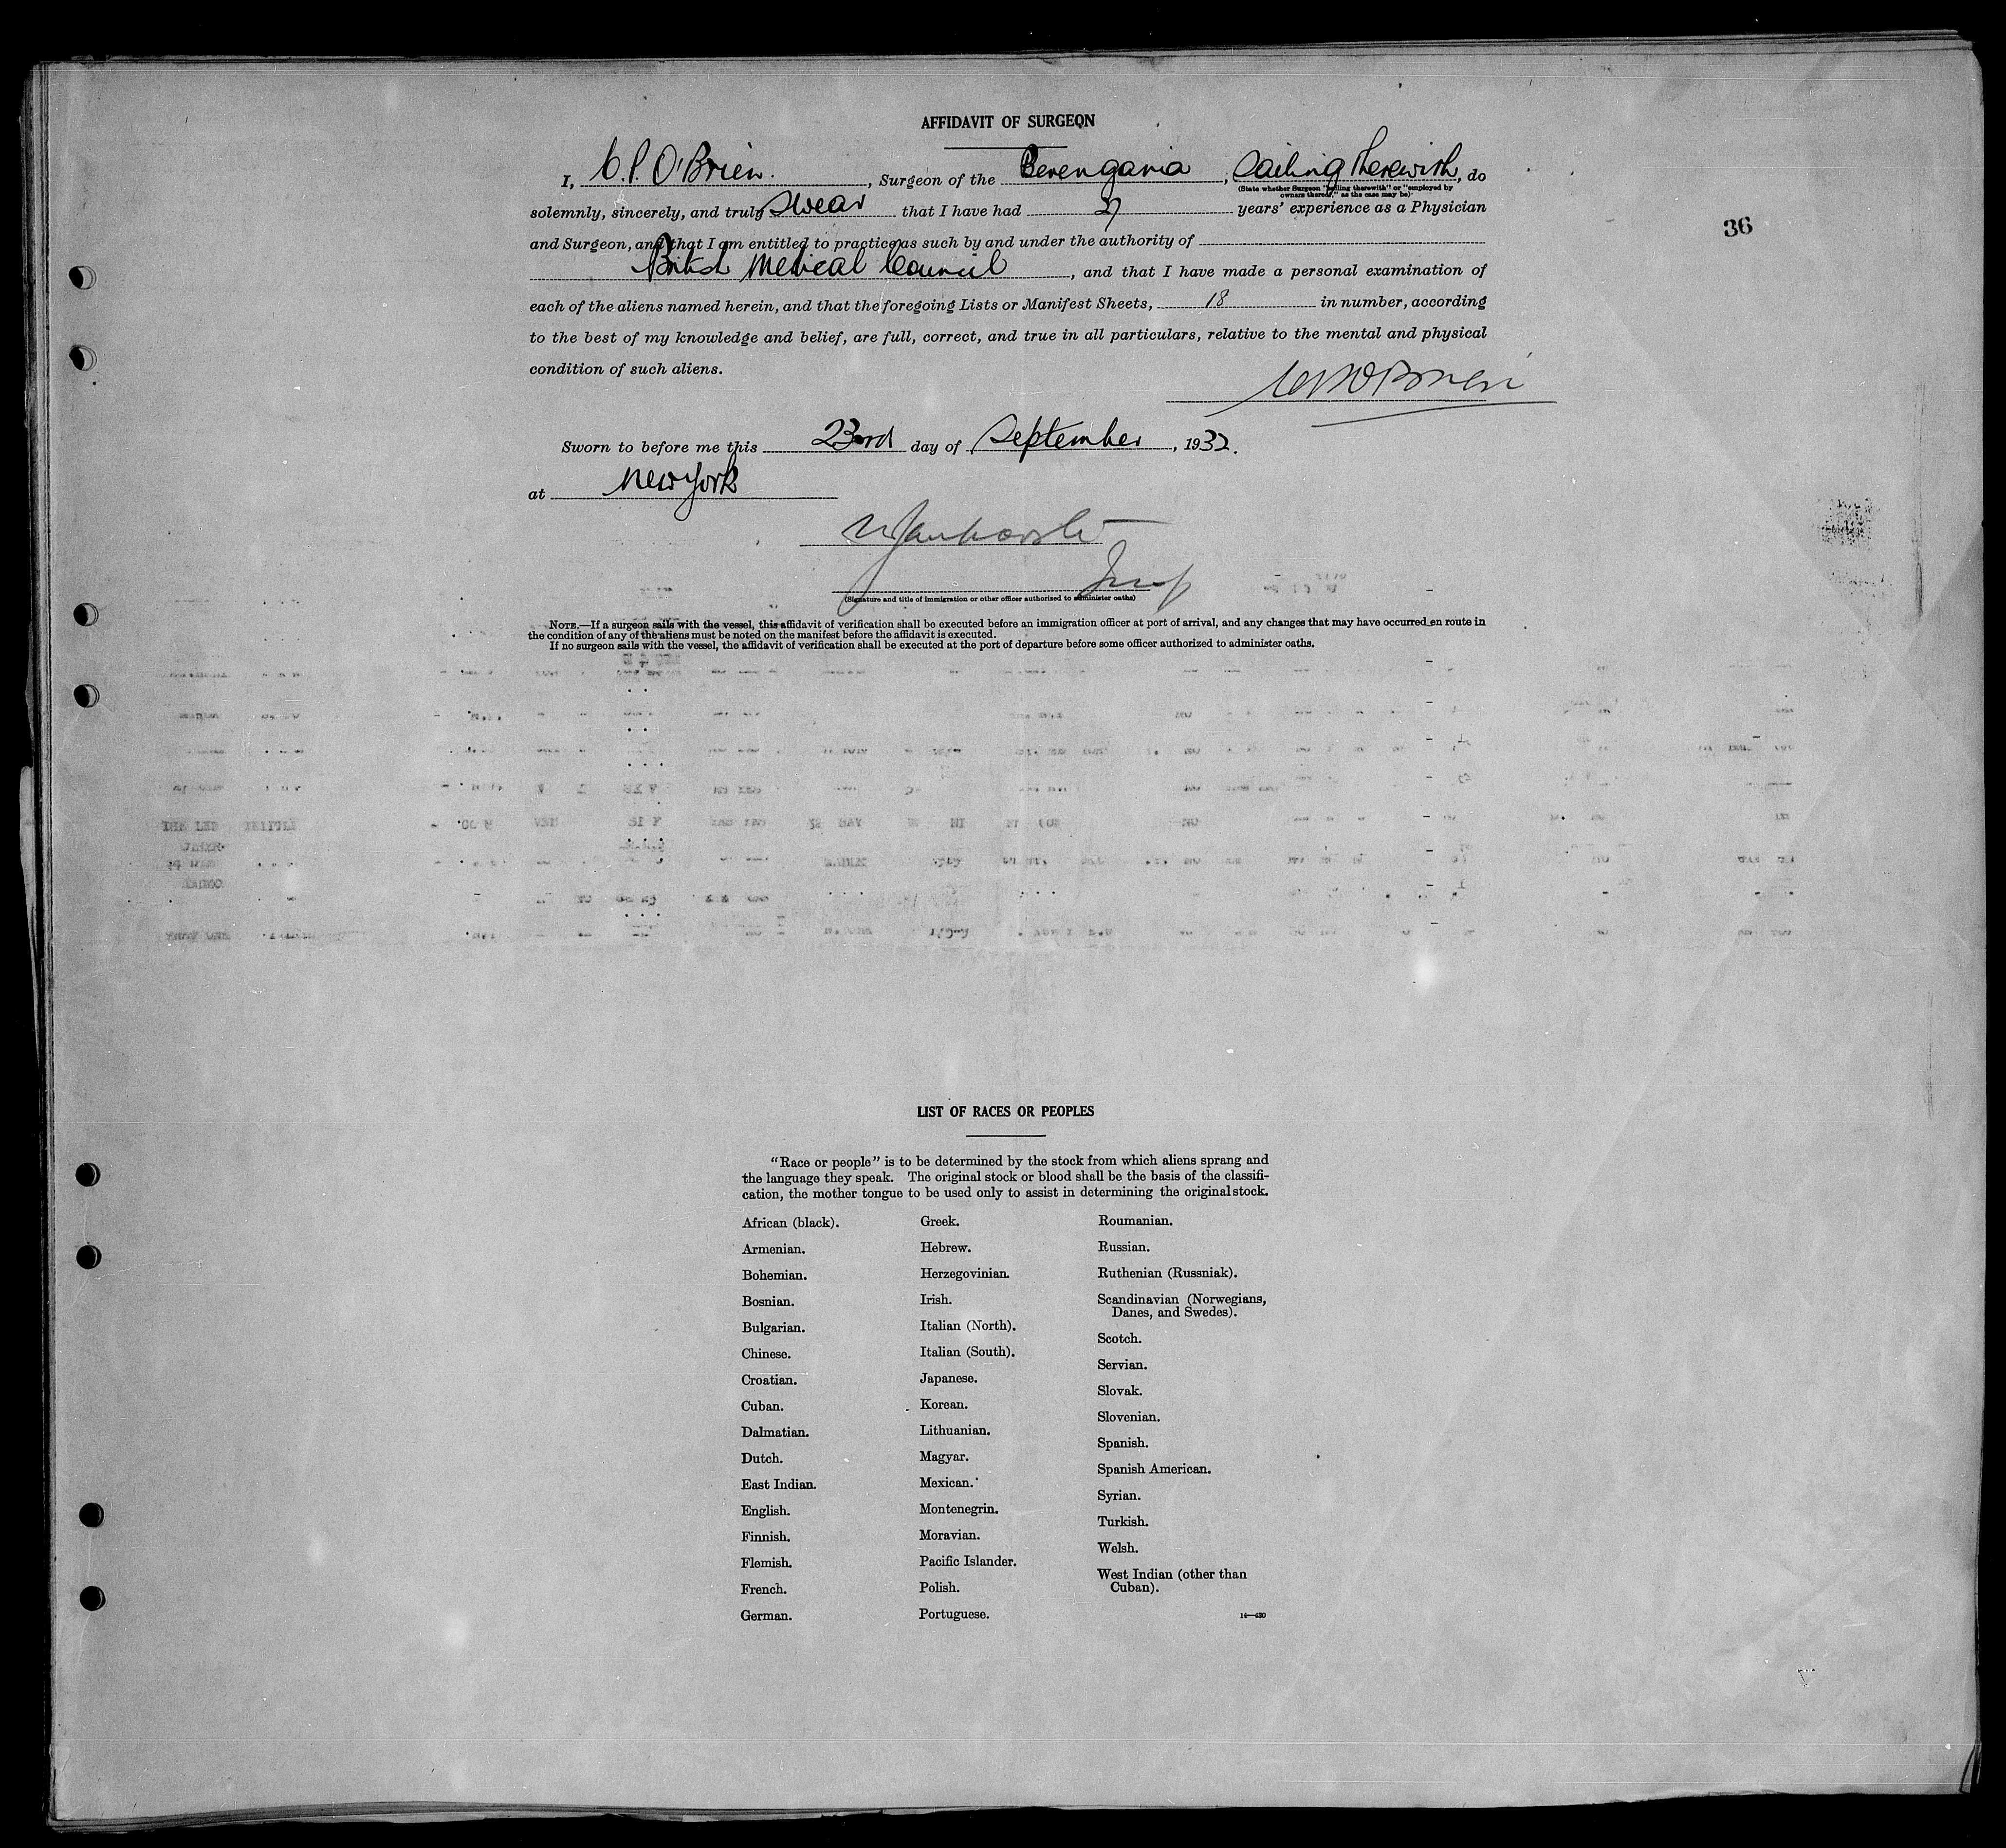 AFFIDAVIT OF SURGEON
I, C.P. O'Brien., Surgeon of the Berengaria, Sailing Therewith, do
(State whether Surgeon "sailing therewith" or "employed by
owners thereof," as the case may be)
solemnly, sincerely, and truly swear that I have had years' experience as a Physician
36
and Surgeon, and that I am entitled to practice as such by and under the authority of
British Medical Council, and that I have made a personal examination of
each of the aliens named herein, and that the foregoing Lists or Manifest Sheets, 18 in number, according
to the best of my knowledge and belief, are full, correct, and true in all particulars, relative to the mental and physical
condition of such aliens.
O'Brien
Sworn to before me this 23rd day of September, 1932.
at New York
(Signature and title of immigration or other officer authorized to administer oaths)
NOTE.—If a surgeon sails with the vessel, this affidavit of verification shall be executed before an immigration officer at port of arrival, and any changes that may have occurred en route in
the condition of any of the aliens must be noted on the manifest before the affidavit is executed.
If no surgeon sails with the vessel, the affidavit of verification shall be executed at the port of departure before some officer authorized to administer oaths.
LIST OF RACES OR PEOPLES
"Race or people" is to be determined by the stock from which aliens sprang and
the language they speak. The original stock or blood shall be the basis of the classifi-
cation, the mother tongue to be used only to assist in determining the original stock.
African (black).
Armenian.
Bohemian.
Bosnian.
Bulgarian.
Chinese.
Croatian.
Cuban.
Dalmatian.
Dutch.
East Indian.
English.
Finnish.
Flemish.
French.
German.
Greek.
Hebrew.
Herzegovinian.
Irish.
Italian (North).
Italian (South).
Japanese.
Korean.
Lithuanian.
Magyar.
Mexican.
Montenegrin.
Moravian.
Pacific Islander.
Polish.
Portuguese.
Roumanian.
Russian.
Ruthenian (Russniak).
Scandinavian (Norwegians,
Danes, and Swedes).
Scotch.
Servian.
Slovak.
Slovenian.
Spanish.
Spanish American.
Syrian.
Turkish.
Welsh.
West Indian (other than
Cuban).
14—430